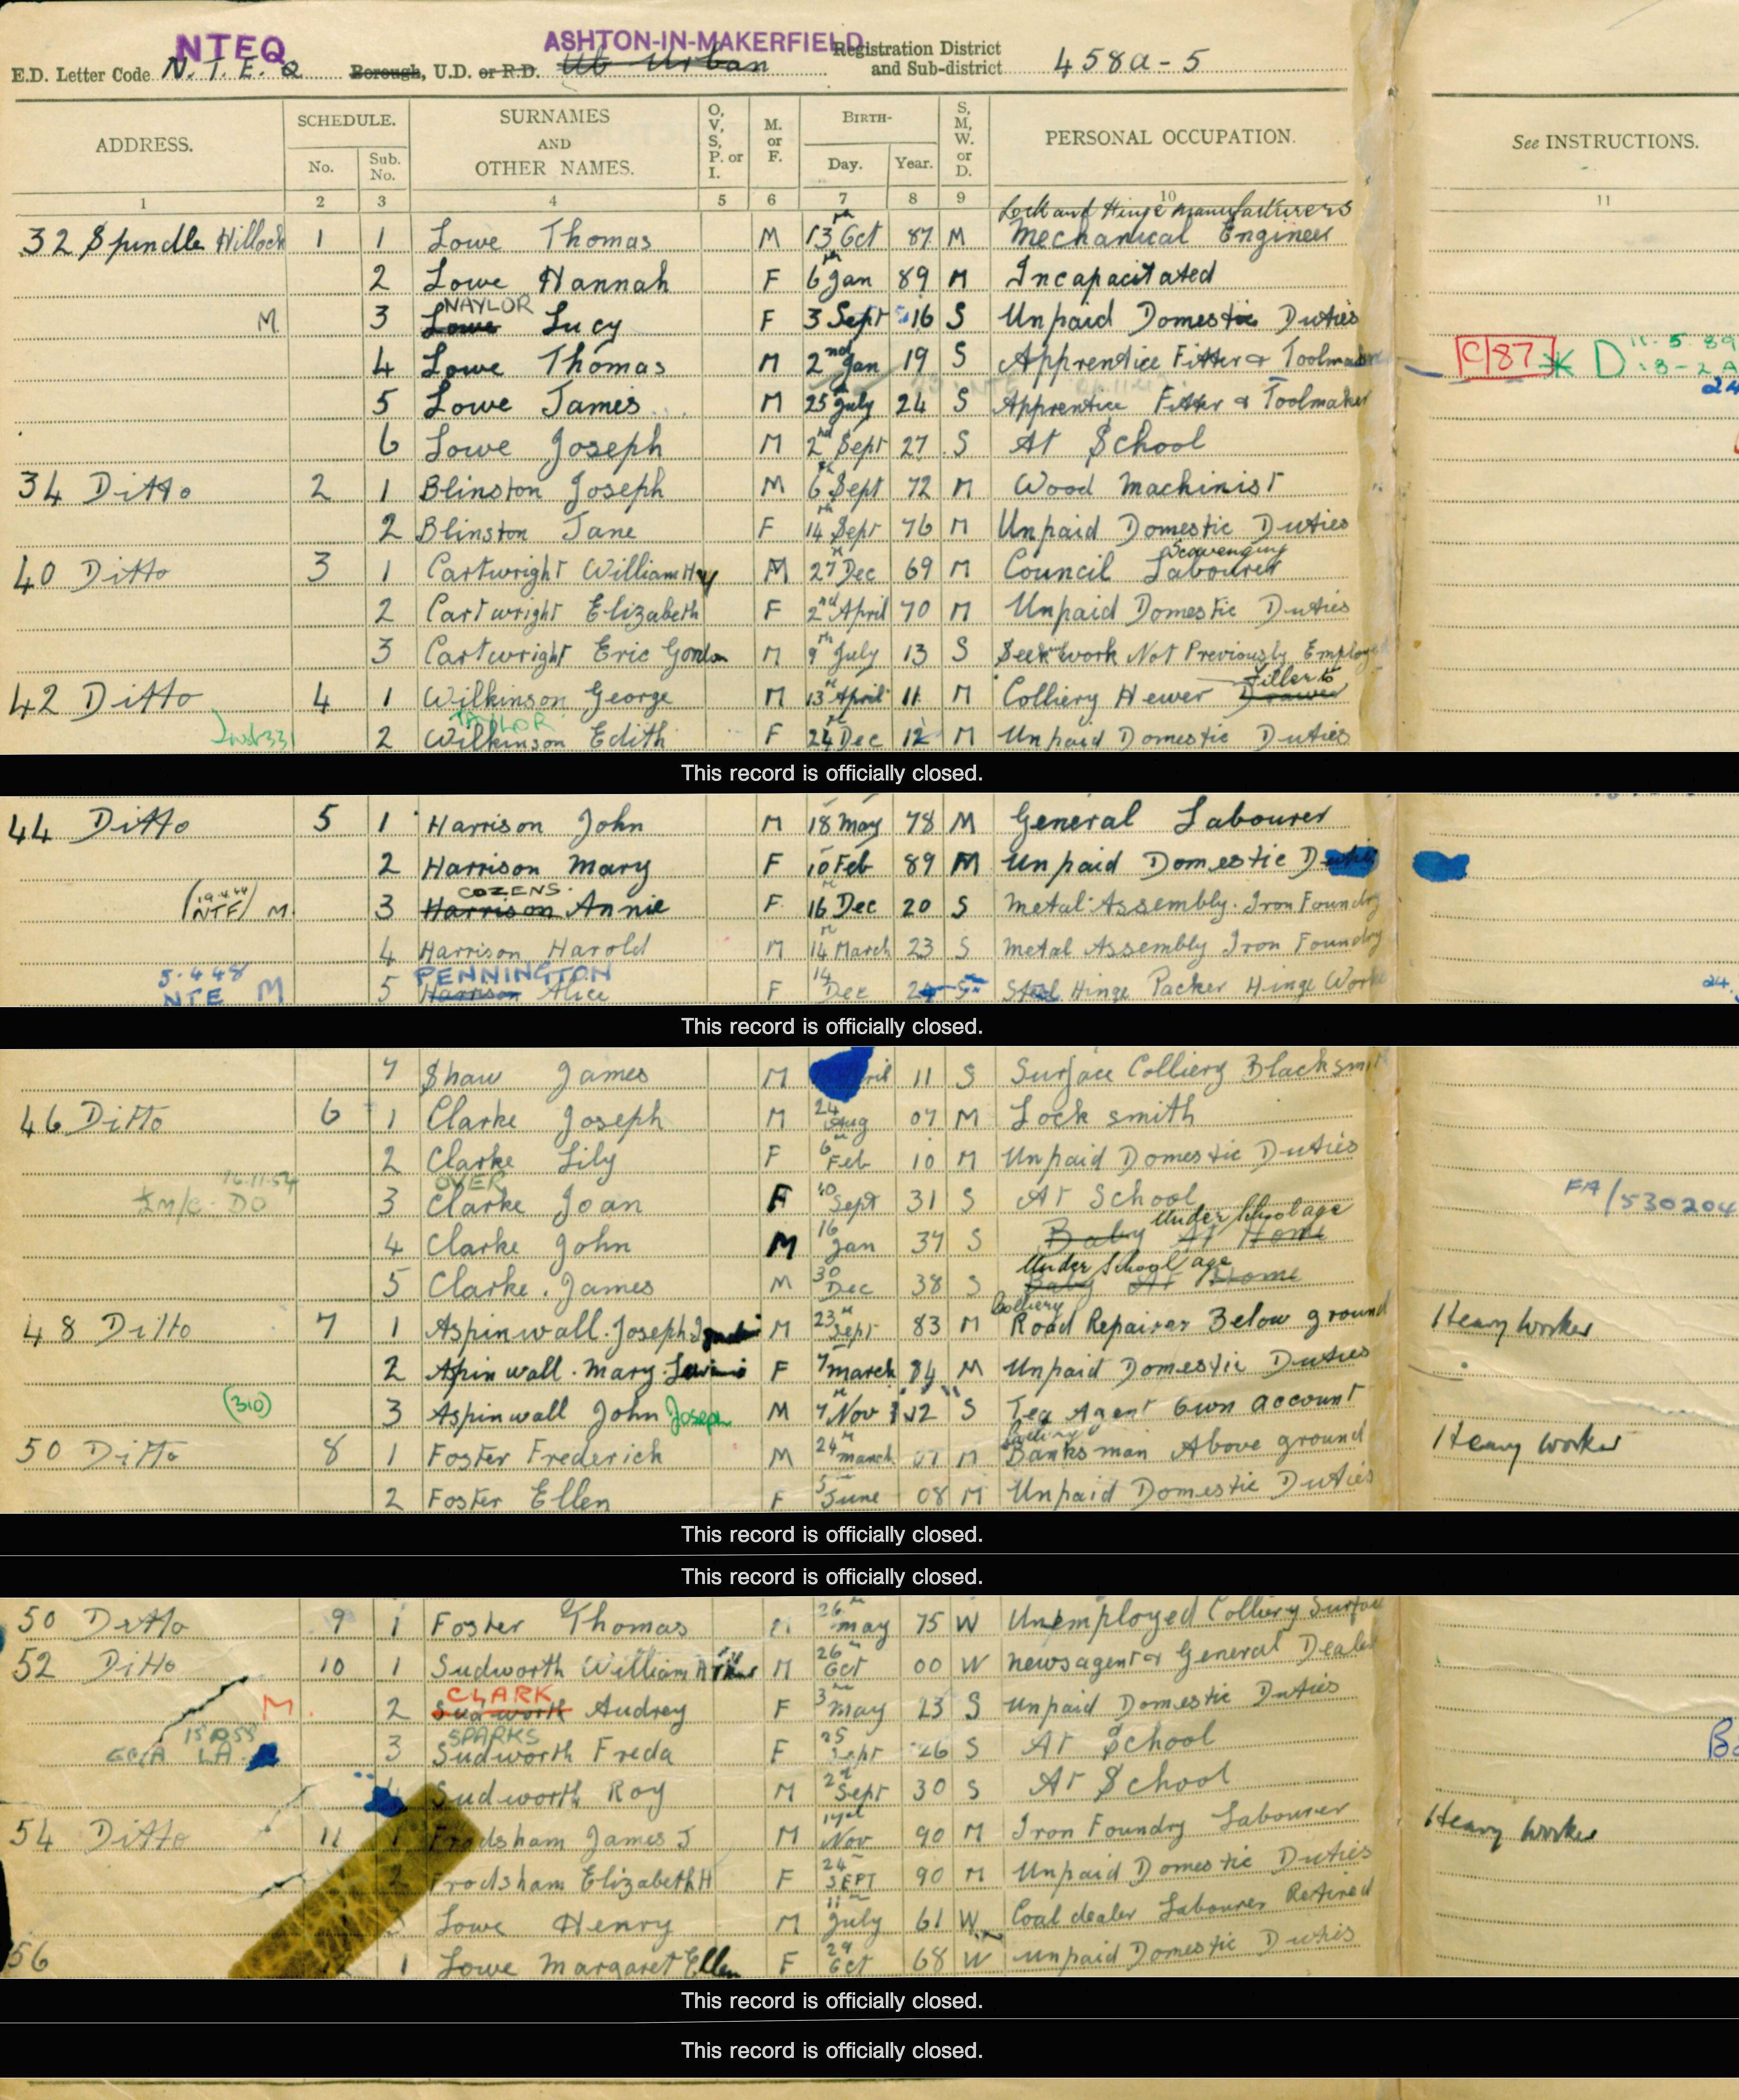 NTEQ ASHTON-IN-MAKERFIELD
E.D. Letter Code N. T. E. Q Borough, U.D. or R.D. Urban Registration District and Sub-district 458A - 5
ADDRESS. SCHEDULE. No. Sub. No. SURNAMES AND OTHER NAMES. O, V, S, P. or I. M. or F. BIRTH- Day. Year. S, M, W. or D. PERSONAL OCCUPATION. See INSTRUCTIONS.
1 2 3 4 5 6 7 8 9 10 11
Lock and Hinge manufacturers
32 Spindle Hillock 1 1 Lowe Thomas M 13th Oct 87 M Mechanical Engineer
2 Lowe Hannah F 6th Jan 89 M Incapacitated
NAYLOR
M 3 Lowe Lucy F 3 Sept 16 S Unpaid Domestic Duties
4 Lowe Thomas M 2nd Jan 19 S Apprentice Fitter & Toolmaker C/87 D
5 Lowe James M 25 July 24 S Apprentice Fitter & Toolmaker
6 Lowe Joseph M 2nd Sept 27 S At School
34 Ditto 2 1 Blinston Joseph M 6th Sept 72 M Wood Machinist
2 Blinston Jane F 14th Sept 76 M Unpaid Domestic Duties
Scavenging
40 Ditto 3 1 Cartwright William Hy M 27 Dec 69 M Council Labourer
2 Cartwright Elizabeth F 2nd April 70 M Unpaid Domestic Duties
3 Cartwright Eric Gordon M 9th July 13 S Seek work Not Previously Employed
Filler
42 Ditto 4 1 Wilkinson George M 13th April 11 M Colliery Hewer Drawer
TAYLOR
2 Wilkinson Edith F 24 Dec 12 M Unpaid Domestic Duties
This record is officially closed.
44 Ditto 5 1 Harrison John M 18 May 78 M General Labourer
2 Harrison Mary F 10 Feb 89 M Unpaid Domestic Duties
COZENS.
NTF M 3 Harrison Annie F 16 Dec 20 S Metal Assembly. Iron Foundry
4 Harrison Harold M 14 March 23 S Metal Assembly Iron Foundry
5.4.48 PENNINGTON
NTE M 5 Harrison Alice F 14 Dec S Steel Hinge Packer Hinge Works
This record is officially closed.
7 Shaw James M 11 S Surface Colliery Blacksmith
46 Ditto 6 1 Clarke Joseph M 24 Aug 07 M Lock smith
2 Clarke Lily F 6th Feb 10 M Unpaid Domestic Duties
16.11.54 OVER
DO 3 Clarke Joan F 10 Sept 31 S At School FA/530204
Under School age
4 Clarke John M 16 Jan 37 S Baby At Home
Under School age
5 Clarke James M 30 Dec 38 S Baby At Home
Colliery
48 Ditto 7 1 Aspinwall Joseph M 23rd Sept 83 M Road Repairer Below ground Heavy Worker
2 Aspinwall Mary F 7 March 84 M Unpaid Domestic Duties
(310) 3 Aspinwall John Joseph M 7 Nov 12 S Tea Agent Own account
50 Ditto 8 1 Foster Frederich M 24th March 07 M Banksman Above ground Heavy Worker
2 Foster Ellen F 5 June 08 M Unpaid Domestic Duties
This record is officially closed.
This record is officially closed.
50 Ditto 9 1 Foster Thomas 26th May 75 W Unemployed Colliery Surface
52 Ditto 10 1 Sudworth William Arthur M 26th Oct 00 W Newsagent & General Dealer
CLARK
M 2 Sudworth Audrey F 3 May 23 S Unpaid Domestic Duties
SPARKS
3 Sudworth Freda F 25 Sept 26 S At School
Sudworth Roy M Sept 30 S At School
54 Ditto 11 1 Frodsham James J M Nov 90 M Iron Foundry Labourer Heavy Worker
2 Frodsham Elizabeth H F 24 SEPT 90 M Unpaid Domestic Duties
Lowe Henry M 11th July 61 W Coal dealer Labourer Retired
56 1 Lowe Margaret Ellen F 29 Oct 68 W Unpaid Domestic Duties
This record is officially closed.
This record is officially closed.